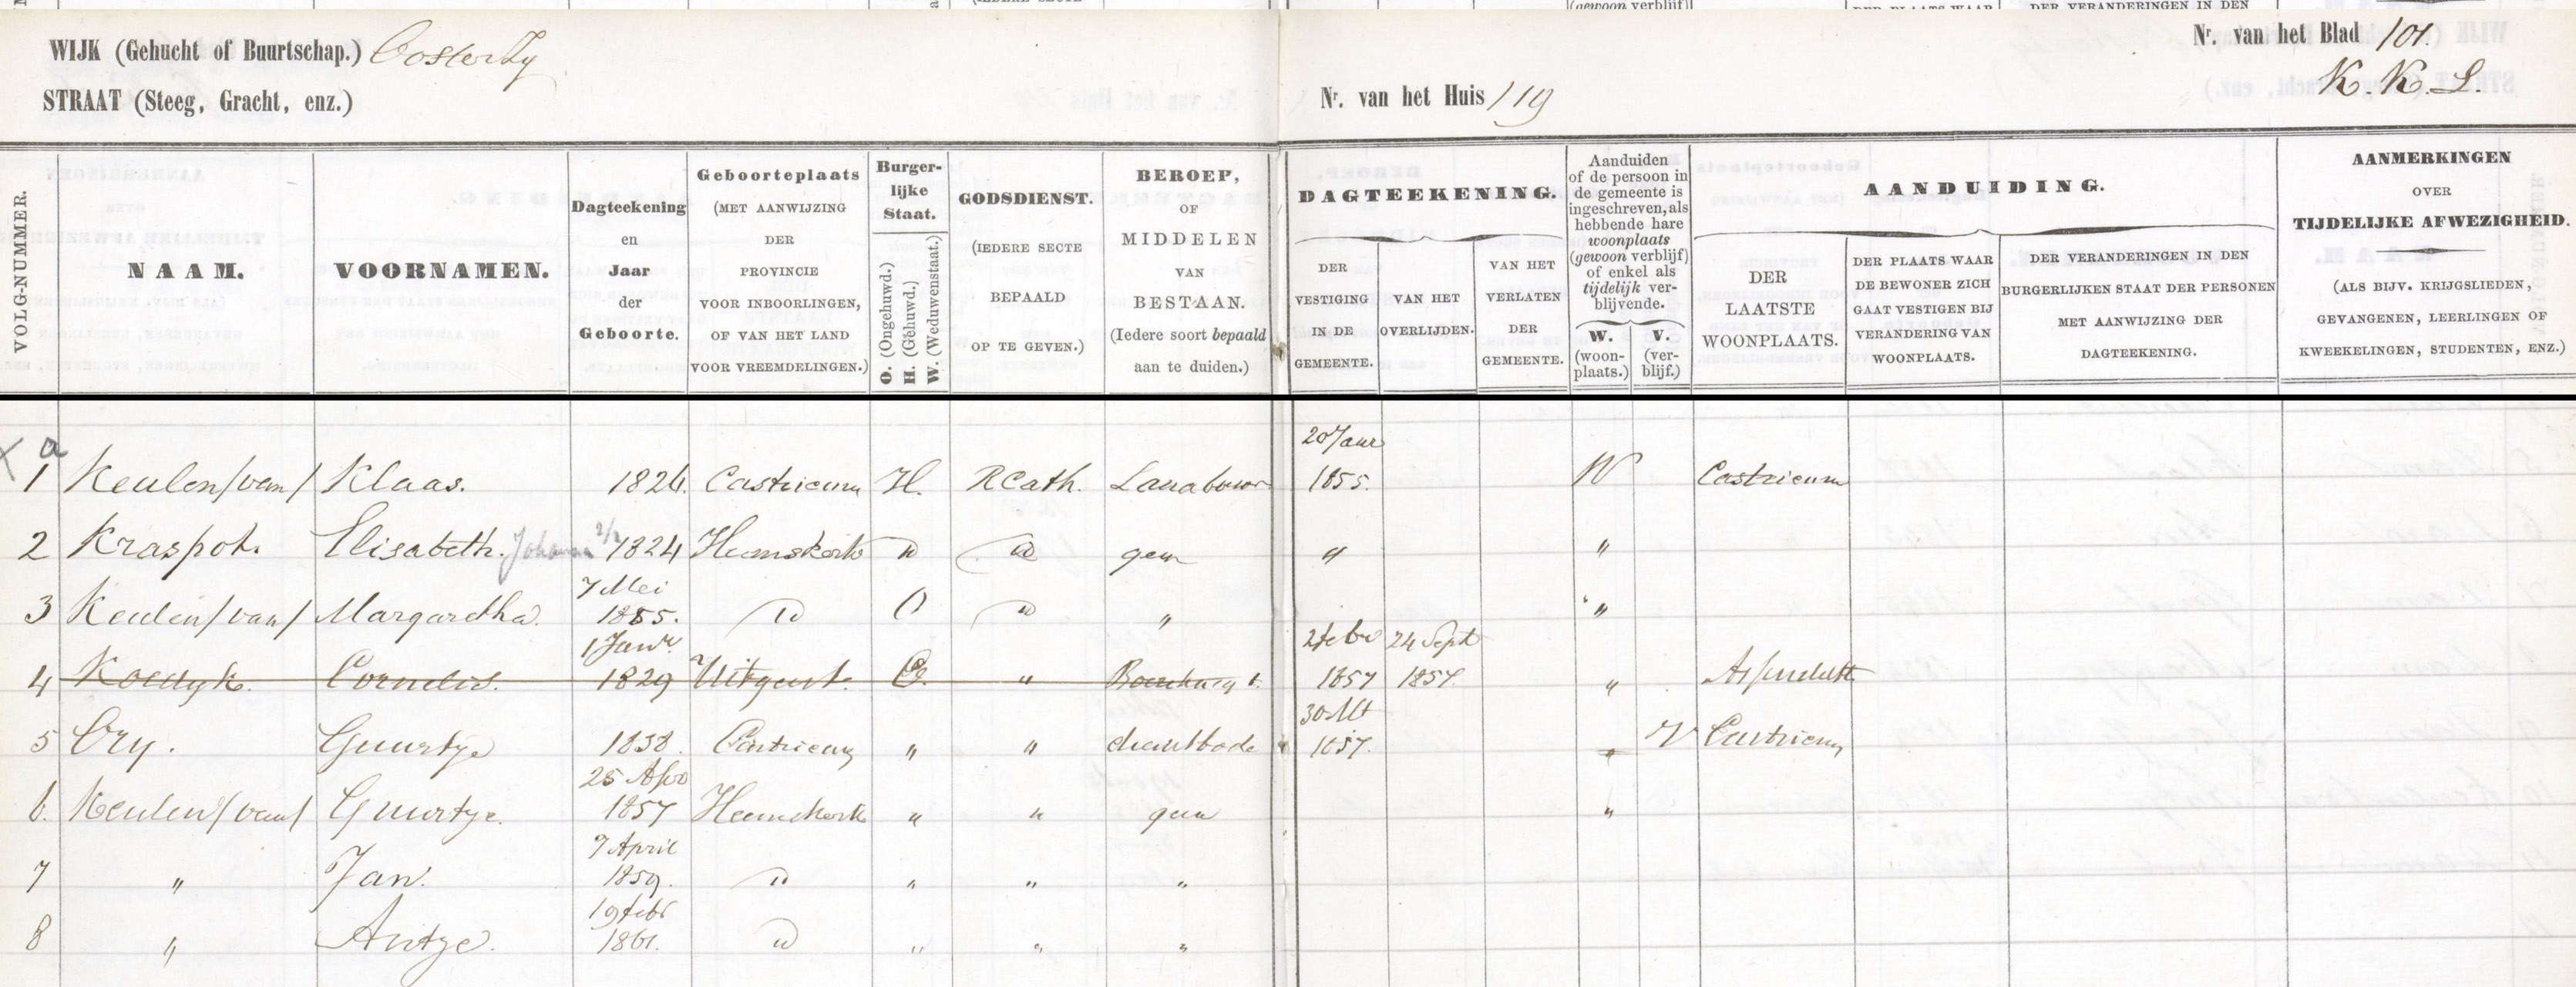 WIJK (Gehucht of Buurtschap.) Oosterzy
Nr. van het Blad 101.
STRAAT (Steeg, Gracht, enz.)
Nr. van het Huis 119
K. K. L.
VOLG-NUMMER.
NAAM.
VOORNAMEN.
Dagteekening
en
Jaar
der
Geboorte.
Geboorteplaats
(MET AANWIJZING
DER
PROVINCIE
VOOR INBOORLINGEN,
OF VAN HET LAND
VOOR VREEMDELINGEN.)
Burger-
lijke
Staat.
O. (Ongehuwd.)
H. (Gehuwd.)
W. (Weduwenstaat.)
GODSDIENST.
(IEDERE SECTE
BEPAALD
OP TE GEVEN.)
BEROEP,
OF
MIDDELEN
VAN
BESTAAN.
(Iedere soort bepaald
aan te duiden.)
DAGTEEKENING.
DER
VESTIGING
IN DE
GEMEENTE.
VAN HET
OVERLIJDEN.
VAN HET
VERLATEN
DER
GEMEENTE.
Aanduiden
of de persoon in
de gemeente is
ingeschreven, als
hebbende hare
woonplaats
(gewoon verblijf)
of enkel als
tijdelijk ver-
blijvende.
W.
(woon-
plaats.)
V.
(ver-
blijf.)
AANDUIDING.
DER
LAATSTE
WOONPLAATS.
DER PLAATS WAAR
DE BEWONER ZICH
GAAT VESTIGEN BIJ
VERANDERING VAN
WOONPLAATS.
DER VERANDERINGEN IN DEN
BURGERLIJKEN STAAT DER PERSONEN
MET AANWIJZING DER
DAGTEEKENING.
AANMERKINGEN
OVER
TIJDELIJKE AFWEZIGHEID.
(ALS BIJV. KRIJGSLIEDEN,
GEVANGENEN, LEERLINGEN OF
KWEEKELINGEN, STUDENTEN, ENZ.)
x a
20 Jaur
1 Keulen/van/ Klaas. 1824. Castricum H. RCath. Lanabouwr 1855. W Castricum
2 Kraspot. Elisabeth. Johanna 2/2 1824 Heemskerk " " geen " "
7 Mei
3 Keulen/van/ Margaretha. 1855. " O " " "
1 Janr. 2 febr 24 Sept
4 Koedyk. Cornelis. 1829 Uitgeest. O. " 1857 1857. " Assendelft
30 Mt
5 Ory. Guurtje 1838. Castricum " " dienstbode 1857. " V Castricum
25 Apr
6. Keulen/van/ Guurtje. 1857 Heemskerk " " geen "
7 April
7 " Jan. 1859. " " " "
19 febr
8 " Antje. 1861. " " " "